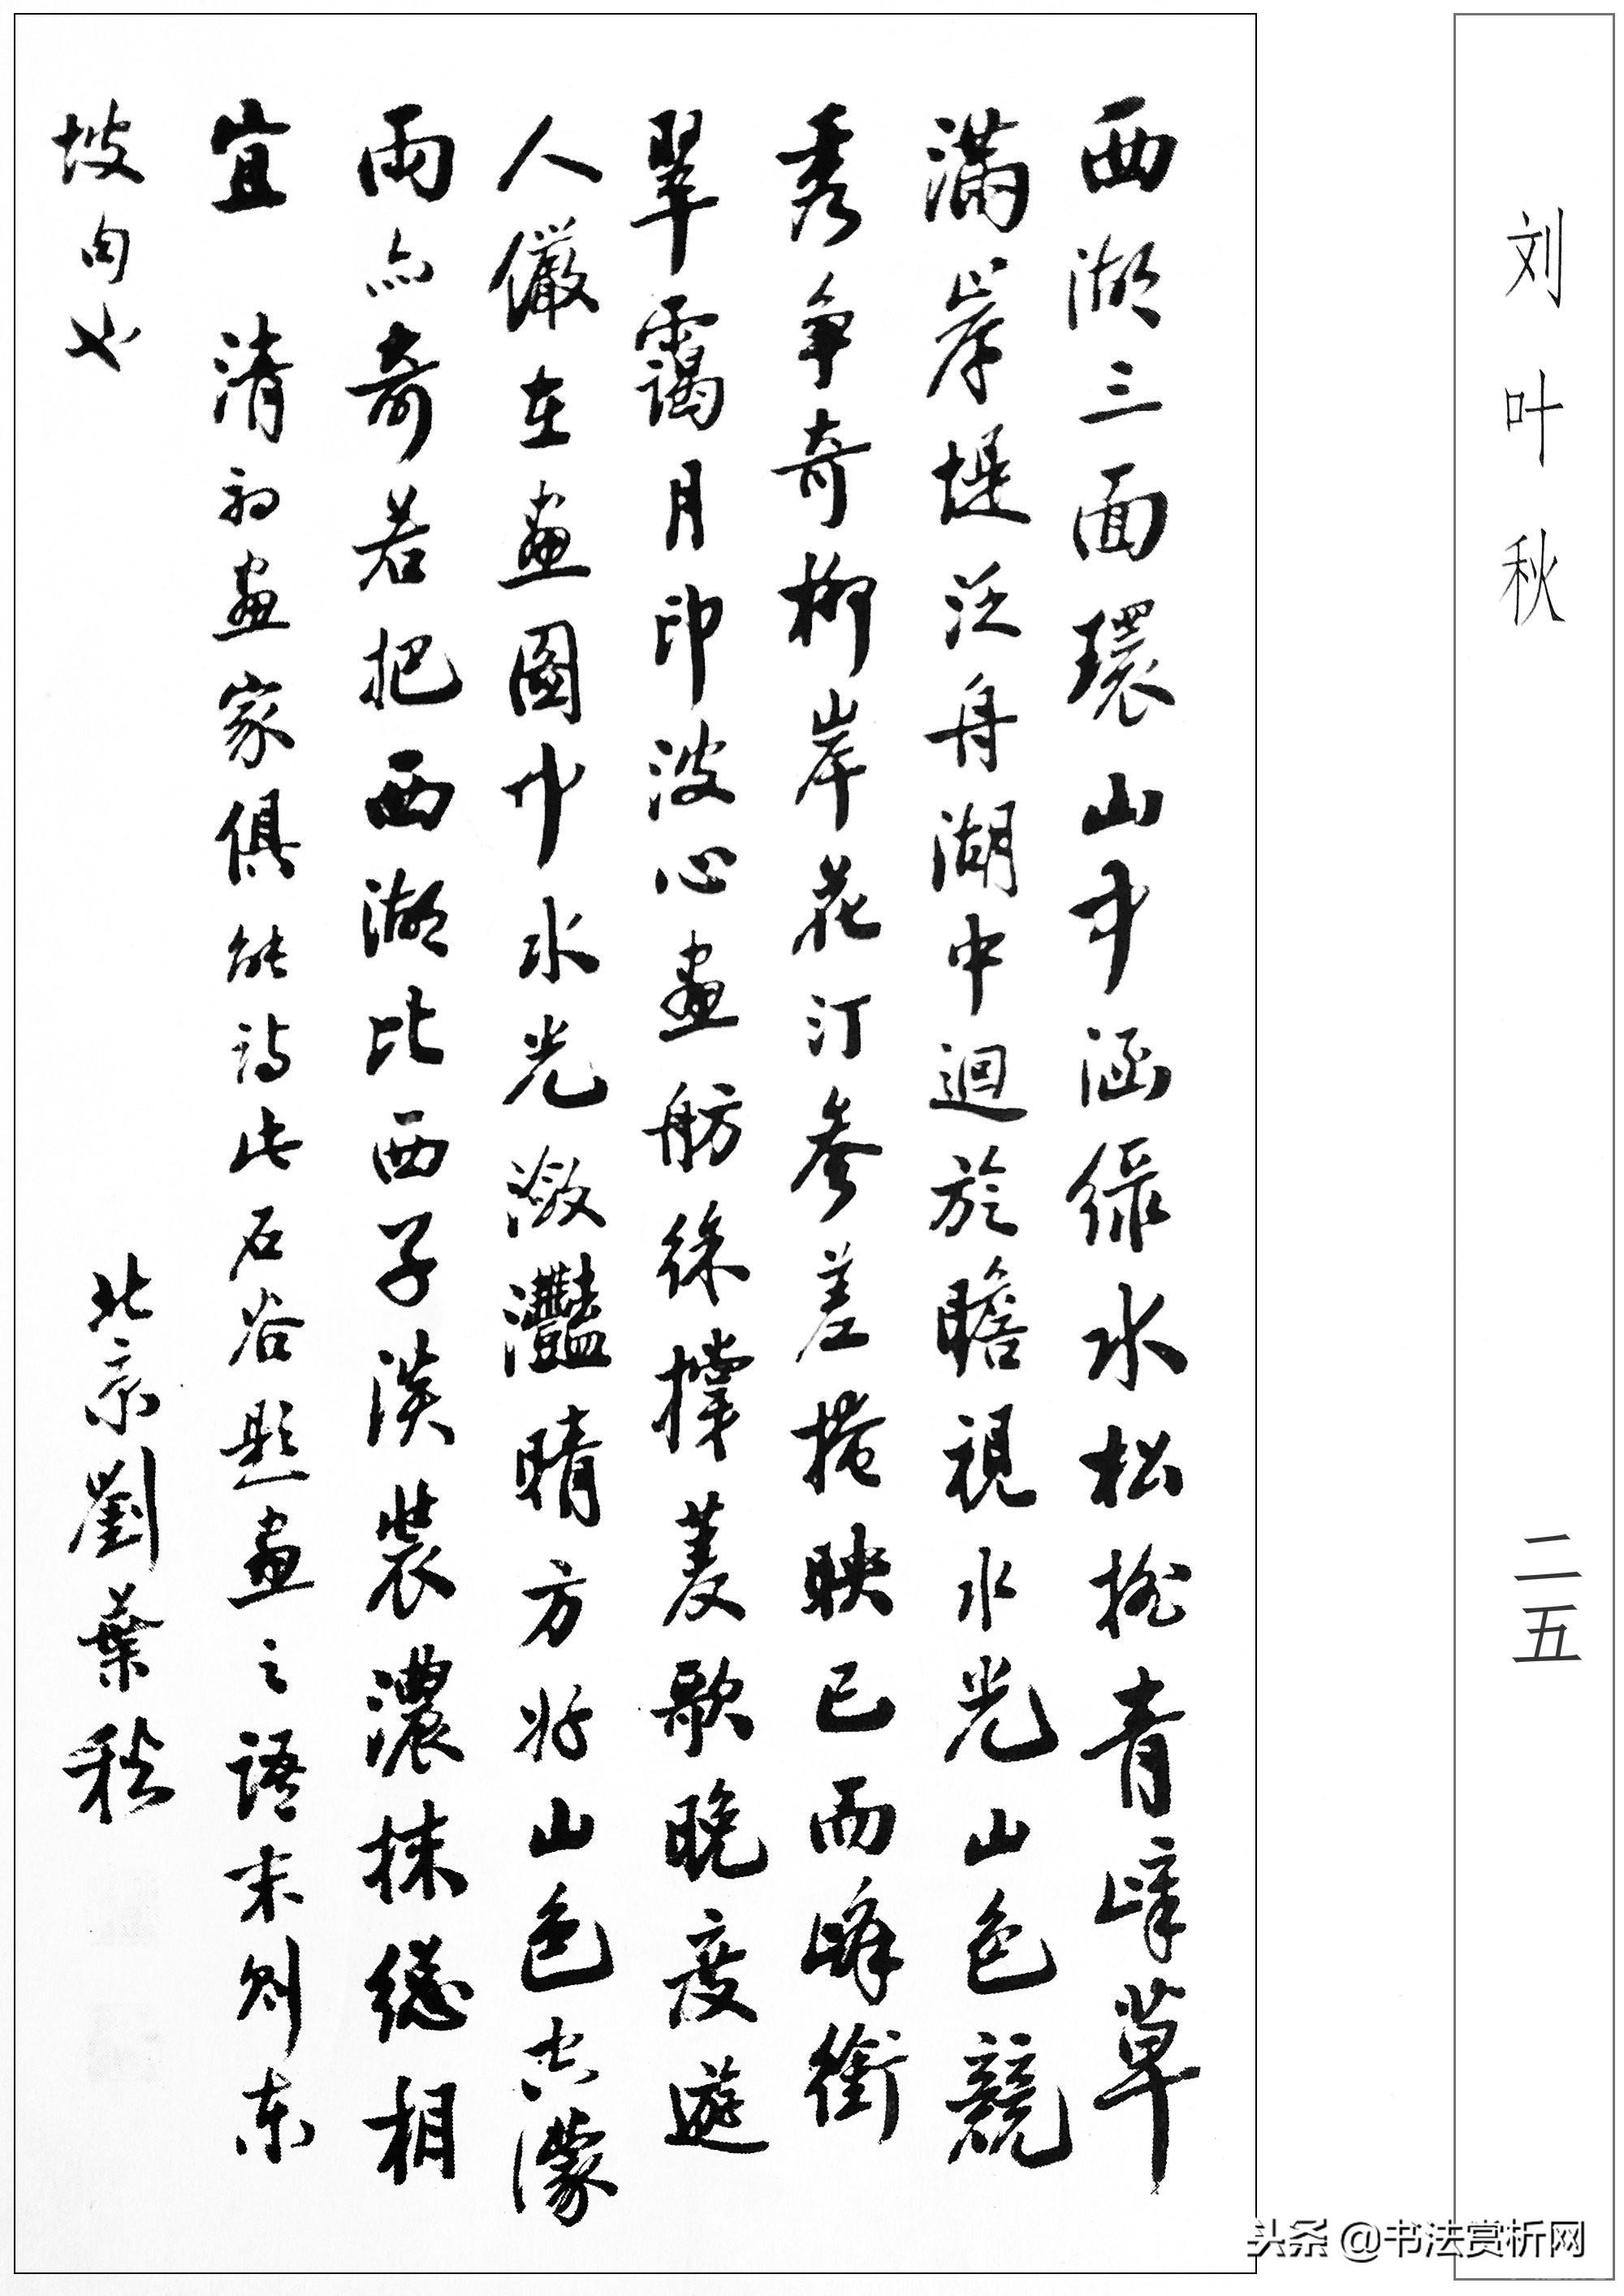 刘叶秋
二五
西湖三面環山中涵緑水松青嶂草
滿岸堤泛舟湖中迴於瞻視水光山色競
秀争奇柳岸花汀參差掩映已而峰銜
翠靄月印波心畫舫徐撑菱歌晚度遊
人儼在畫圖中水光瀲灩晴方好山色空濛
雨亦奇若把西湖比西子淡裝濃抹總相
宜 清初畫家俱能詩此石谷題畫之語末則東
坡句也 北京劉葉秋
头条 @书法赏析网